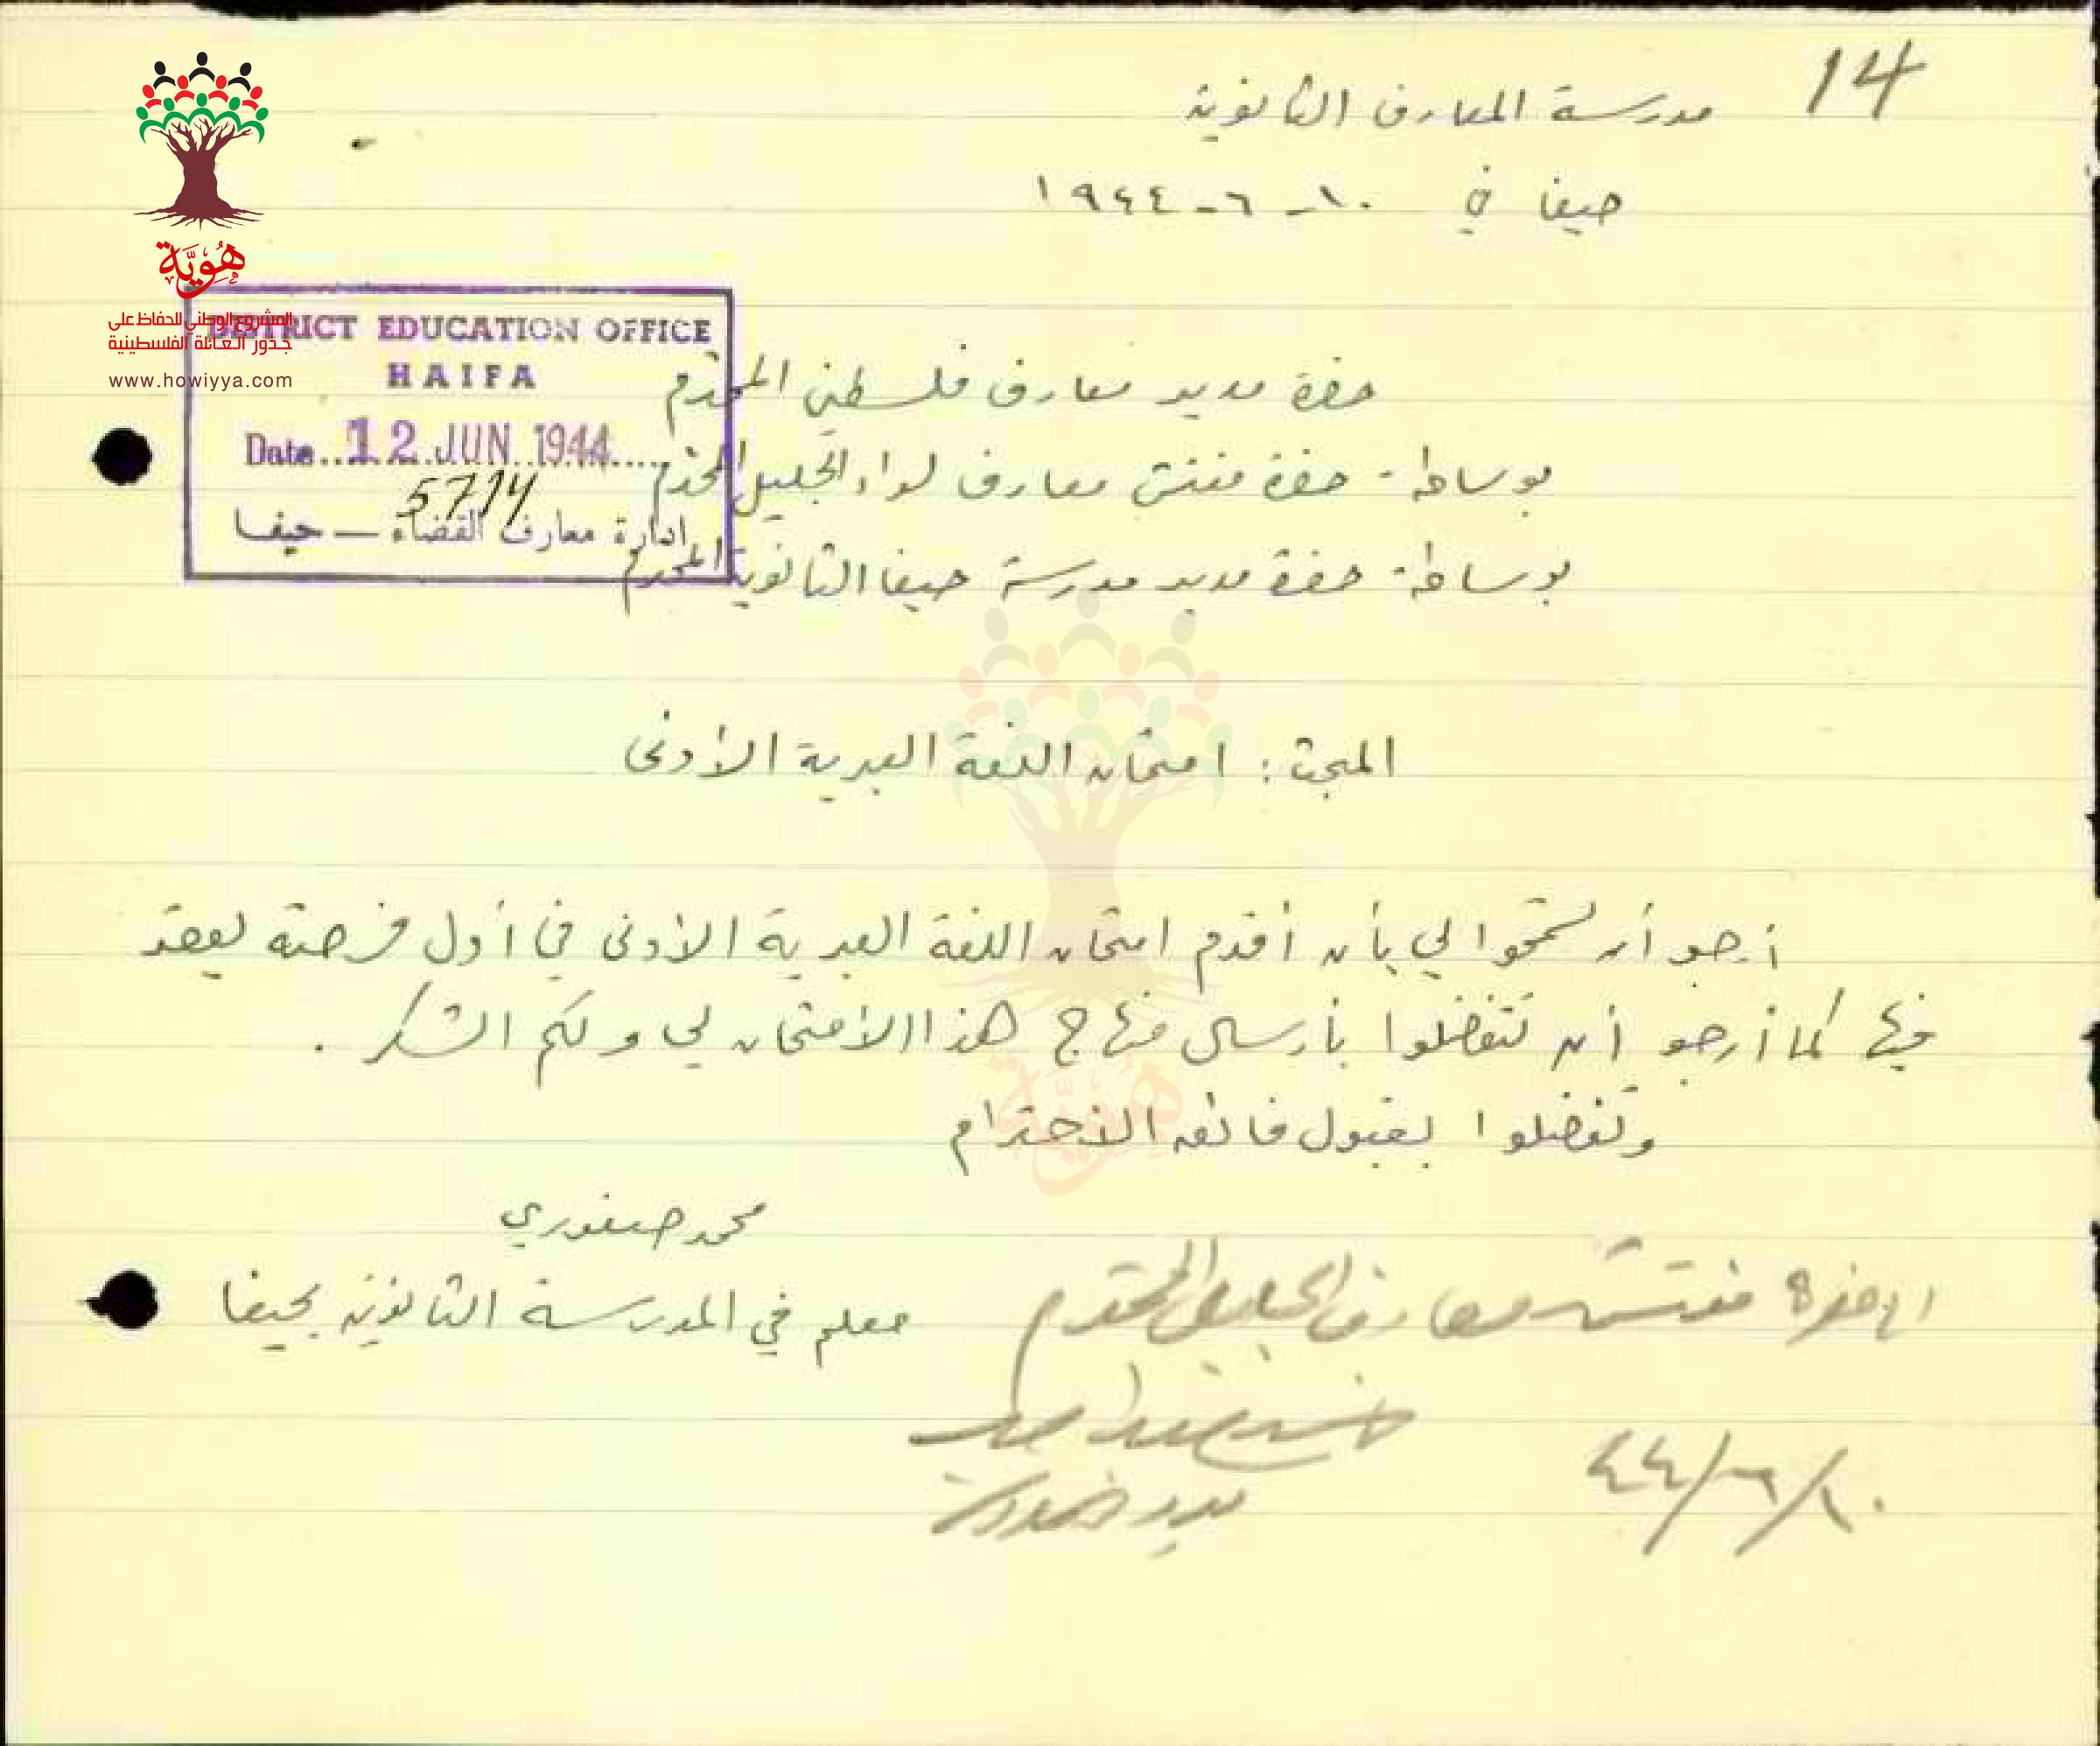 14
مدرسة المعارف الثانوية
حيفا في ١٠-٦-١٩٤٤
هُوِيَّة
المشروع الوطني للحفاظ على
جذور العائلة الفلسطينية
www.howiyya.com
DISTRICT EDUCATION OFFICE
HAIFA
Date..12.JUN.1944....
5714
ادارة معارف القضاء — حيفا
حضرة مدير معارف فلسطين المحترم
بوساطة حضرة مفتش معارف لواء الجليل المحترم
بوساطة حضرة مدير مدرسة حيفا الثانوية المحترم
المبحث : امتحان اللغة العبرية الأدنى
أرجو أن تسمحوا لي بأن أقدم امتحان اللغة العبرية الأدنى في أول فرصة يعقد
فيها كما أرجو أن تتفضلوا بأرسال منهاج هذا الامتحان لي ولكم الشكر .
وتفضلوا بقبول فائق الاحترام
محمد صفوري
معلم في المدرسة الثانوية بحيفا
حضرة مفتش معارف الجليل المحترم
٤٤/٦/١٠
هُوِيَّة